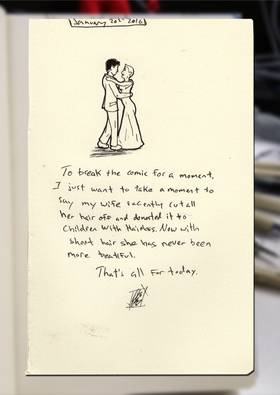 January 20th 2016
To break the comic for a moment,
I just want to take a moment to
say my wife recently cut all
her hair off and donated it to
children with Hairloss. Now with
short hair she has never been
more beatiful.
That's all for today.